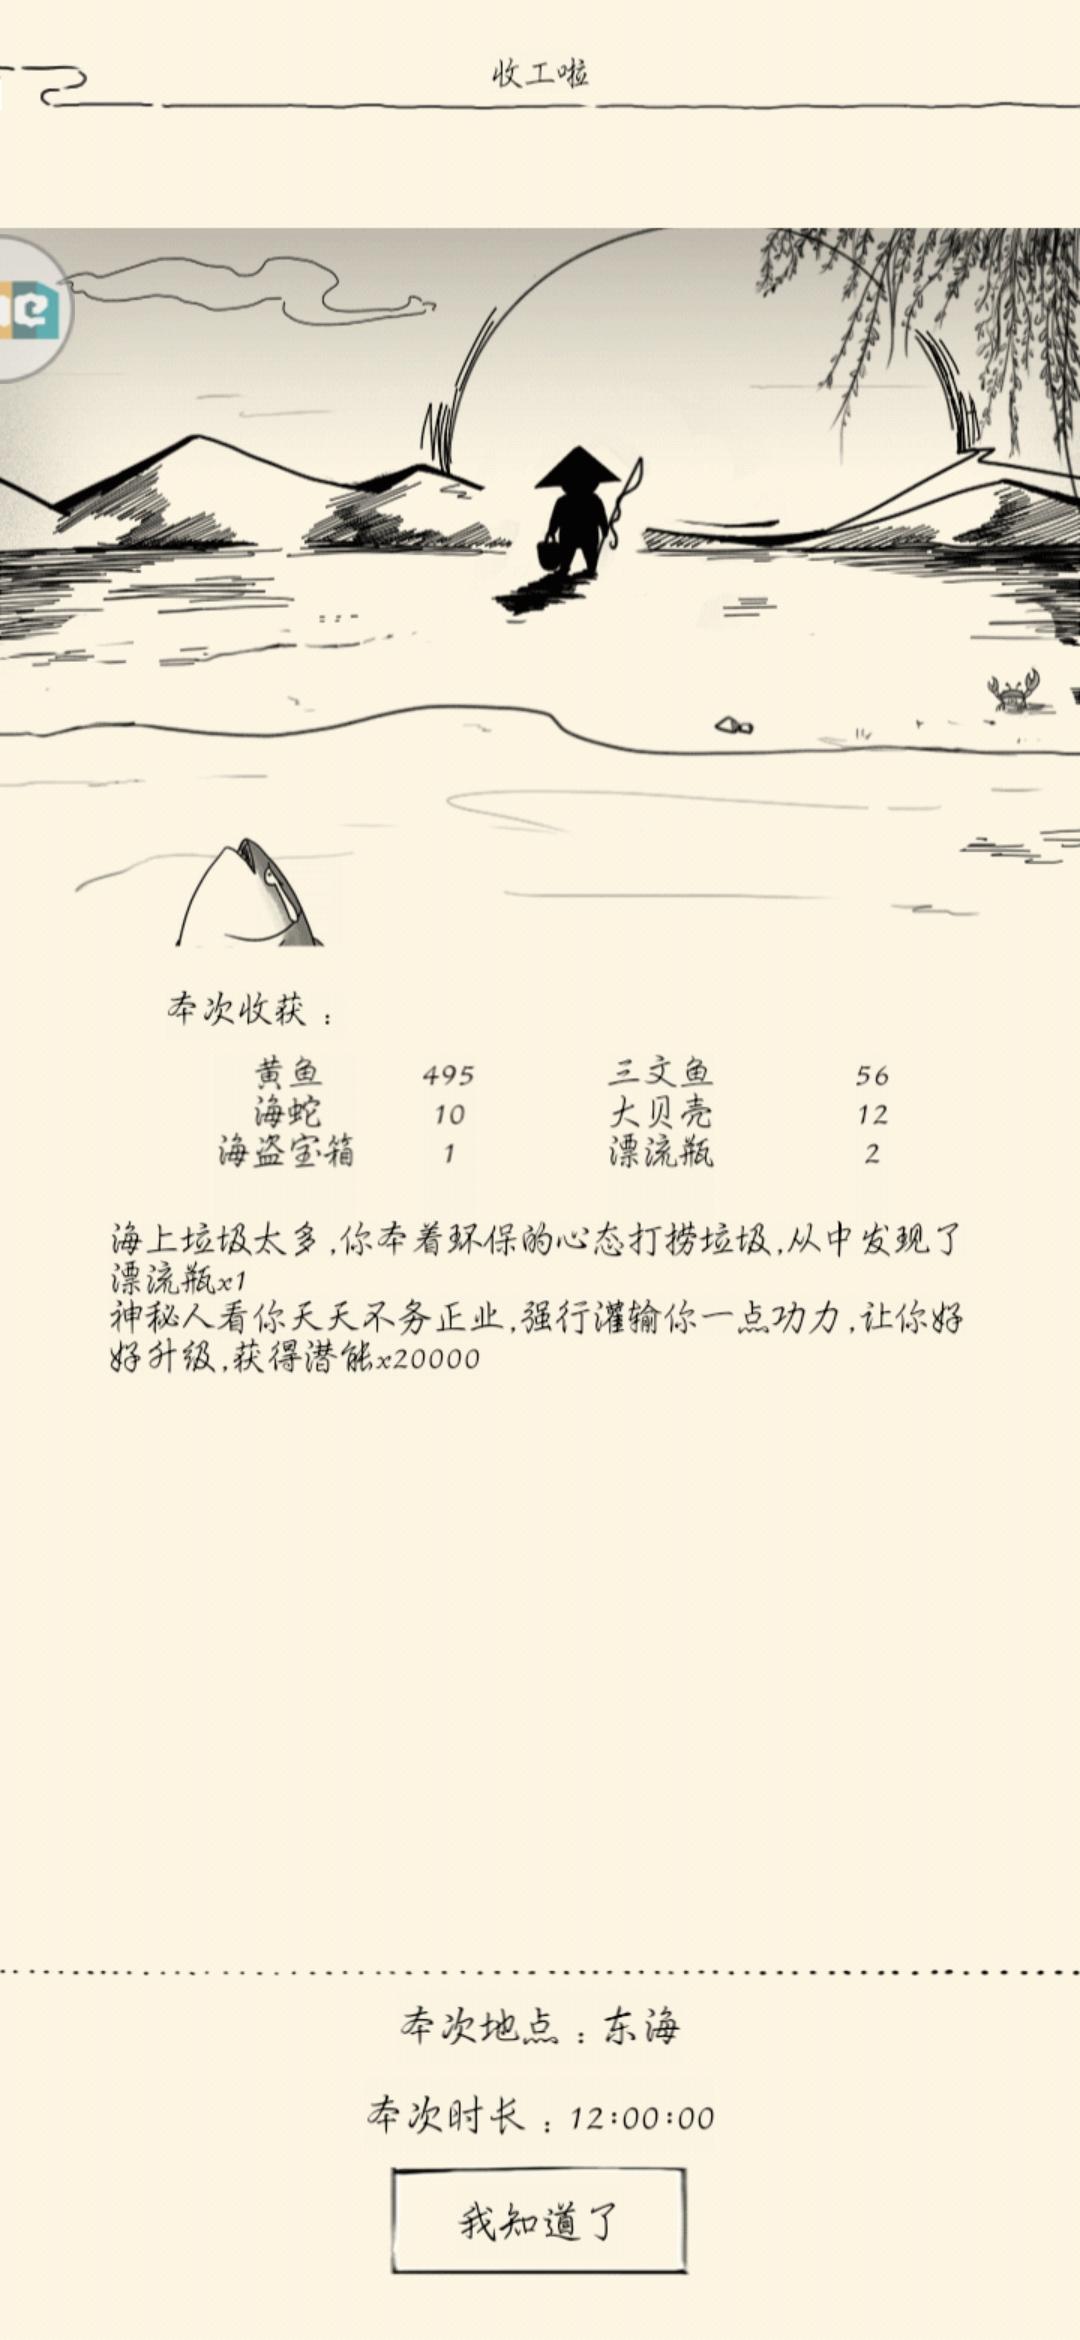 收工啦
本次收获：
黄鱼 495 三文鱼 56
海蛇 10 大贝壳 12
海盗宝箱 1 漂流瓶 2
海上垃圾太多,你本着环保的心态打捞垃圾,从中发现了
漂流瓶x1
神秘人看你天天不务正业,强行灌输你一点功力,让你好
好升级,获得潜能x20000
本次地点：东海
本次时长：12:00:00
我知道了